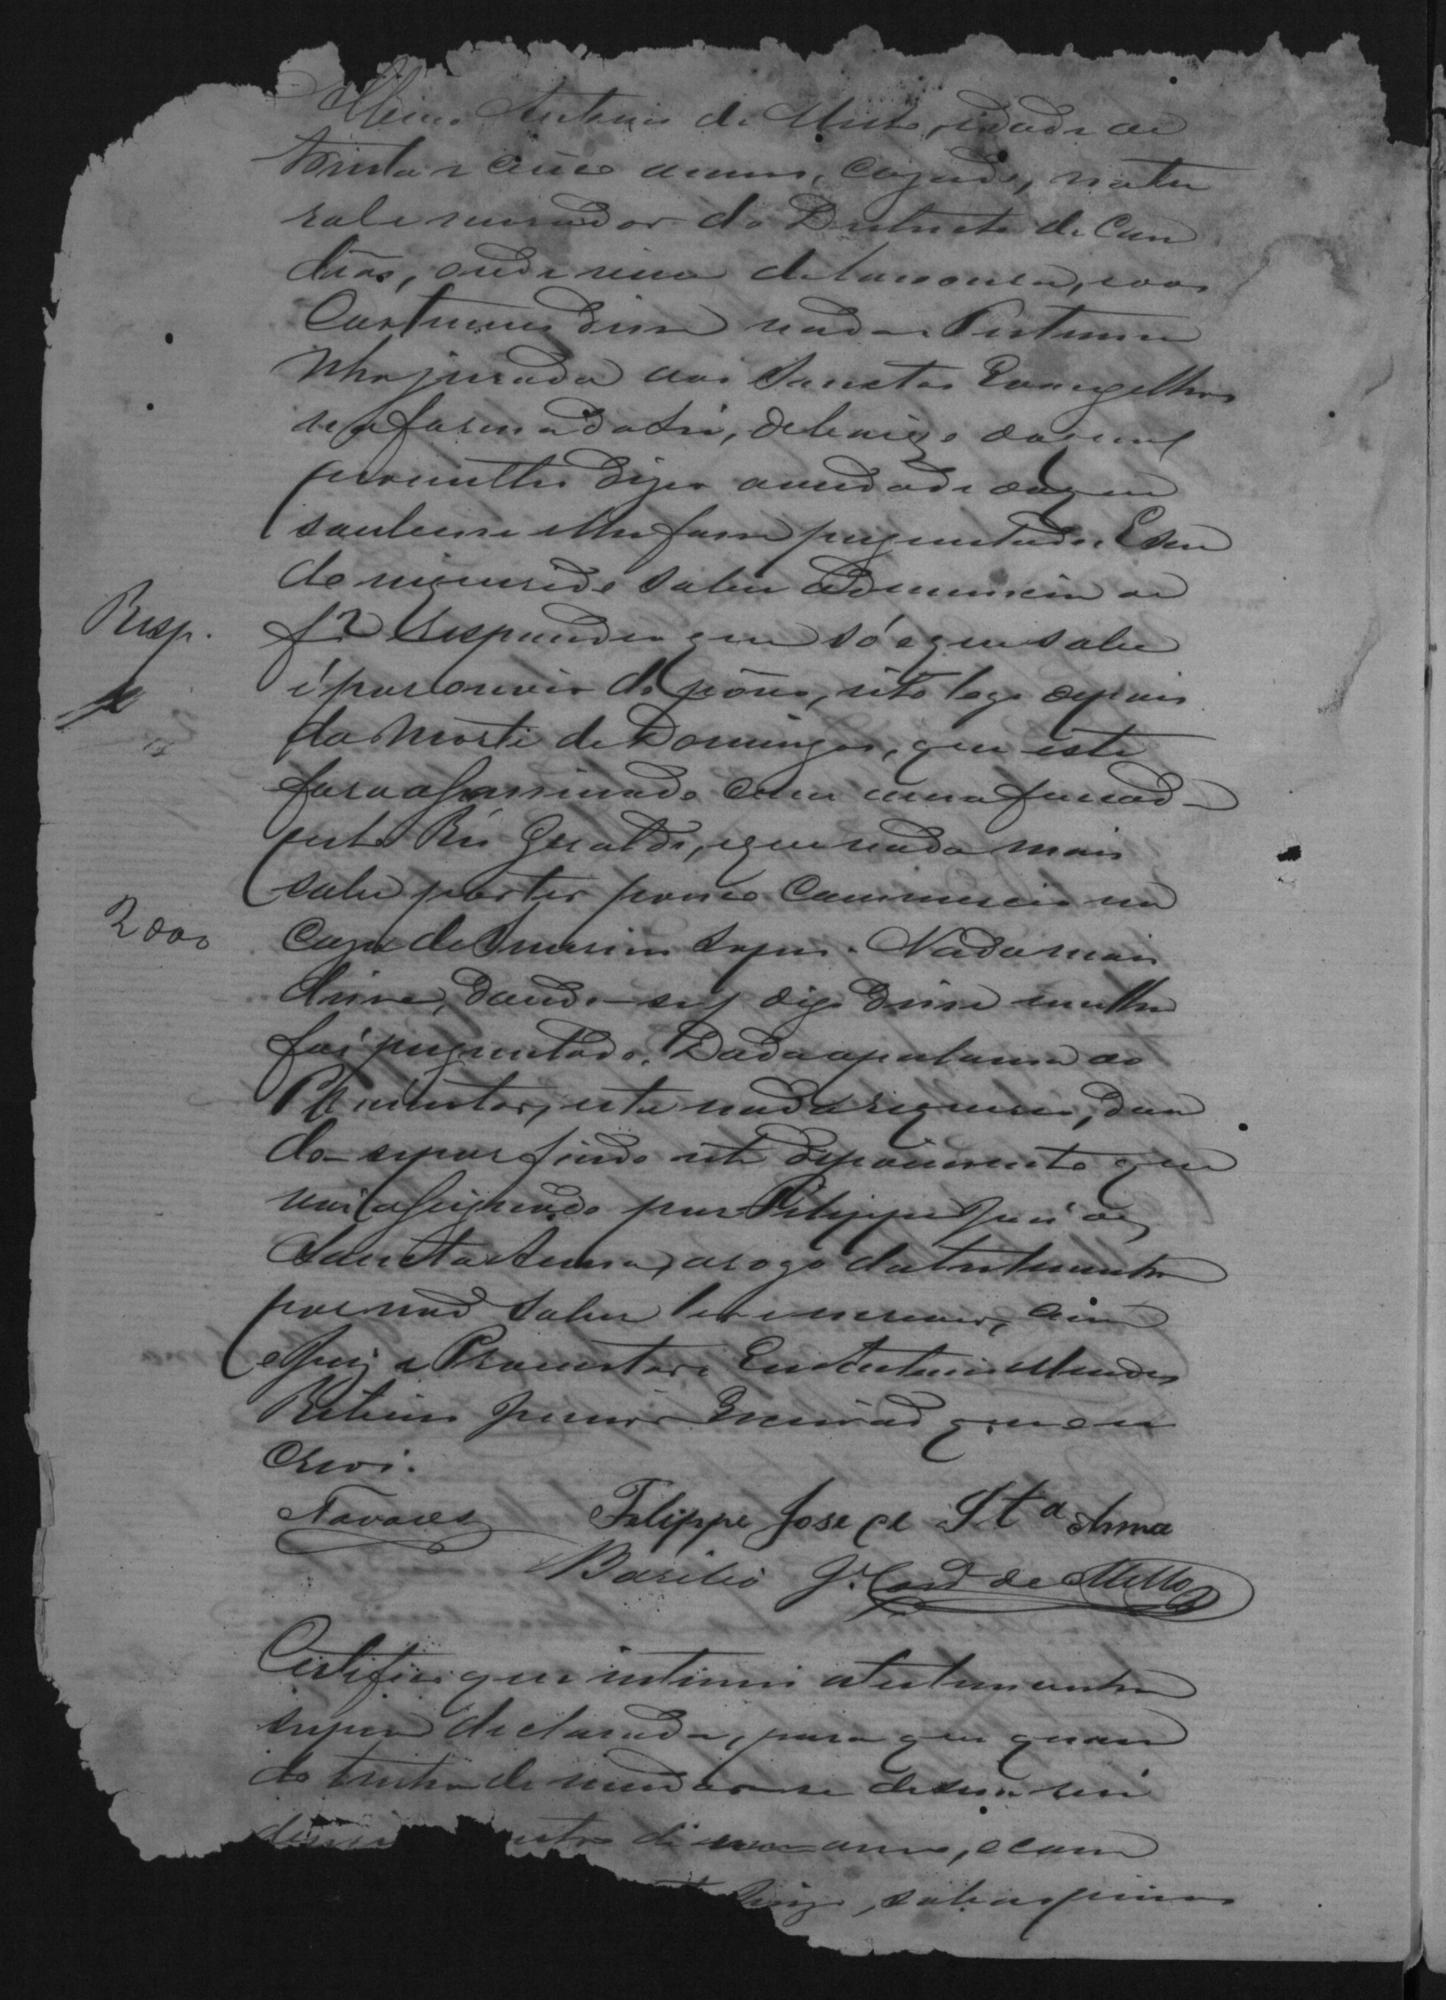 Antonio de Mello, idade de
trinta e cinco annos, cazado, natu
ral e morador do Districto de Can
dêas, onde vive de lavoura, e aos
Costumes disse nada. Testemu
nha jurada aos Sanctos Evangelhos
na forma da Lei, debaixo do qual
prometteo dizer a verdade do que
soubesse e lhe fosse preguntado. E sen
do inquerido sobre a denuncia de
f2 Respondeo que só o que sabe
Resp.
é por ouvir do povo, isto logo depois
da Morte de Domingos, que este
fora assassinado com uma facada
pelo Réo Geraldo, e que nada mais
sabe por ter pouco Commercio na
2000
Caza de Lopes. Nada mais
disse, dando-se digo disse nem lhe
foi preguntado. Dada a palavra ao
Promotor, este nada requereo, dan
do-se por findo este depoimento que
vai assignado por Philippe José de
Sancta Anna, a rogo da testemunha
por não saber ler e escrever, com
o Juiz e Promotor. Eu Antonio Mendes
Ribeiro Junior Escrivão que o es
crevi.
Navares
Felippe Jose de Sta Anna
Basilio J. Card de Mello
Certifico que intimei a testemunha
supra declarada, para que quan
do tenha de mudar-se de sua resi
dencia dentro de um anno, o com
Juizo, sob as penas